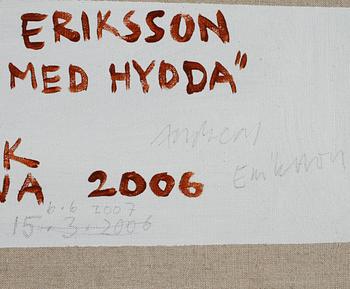 ERIKSSON
MED HYDDA"
K
NA 2006
Andreas
Eriksson
6.6 2007
15.3.2006